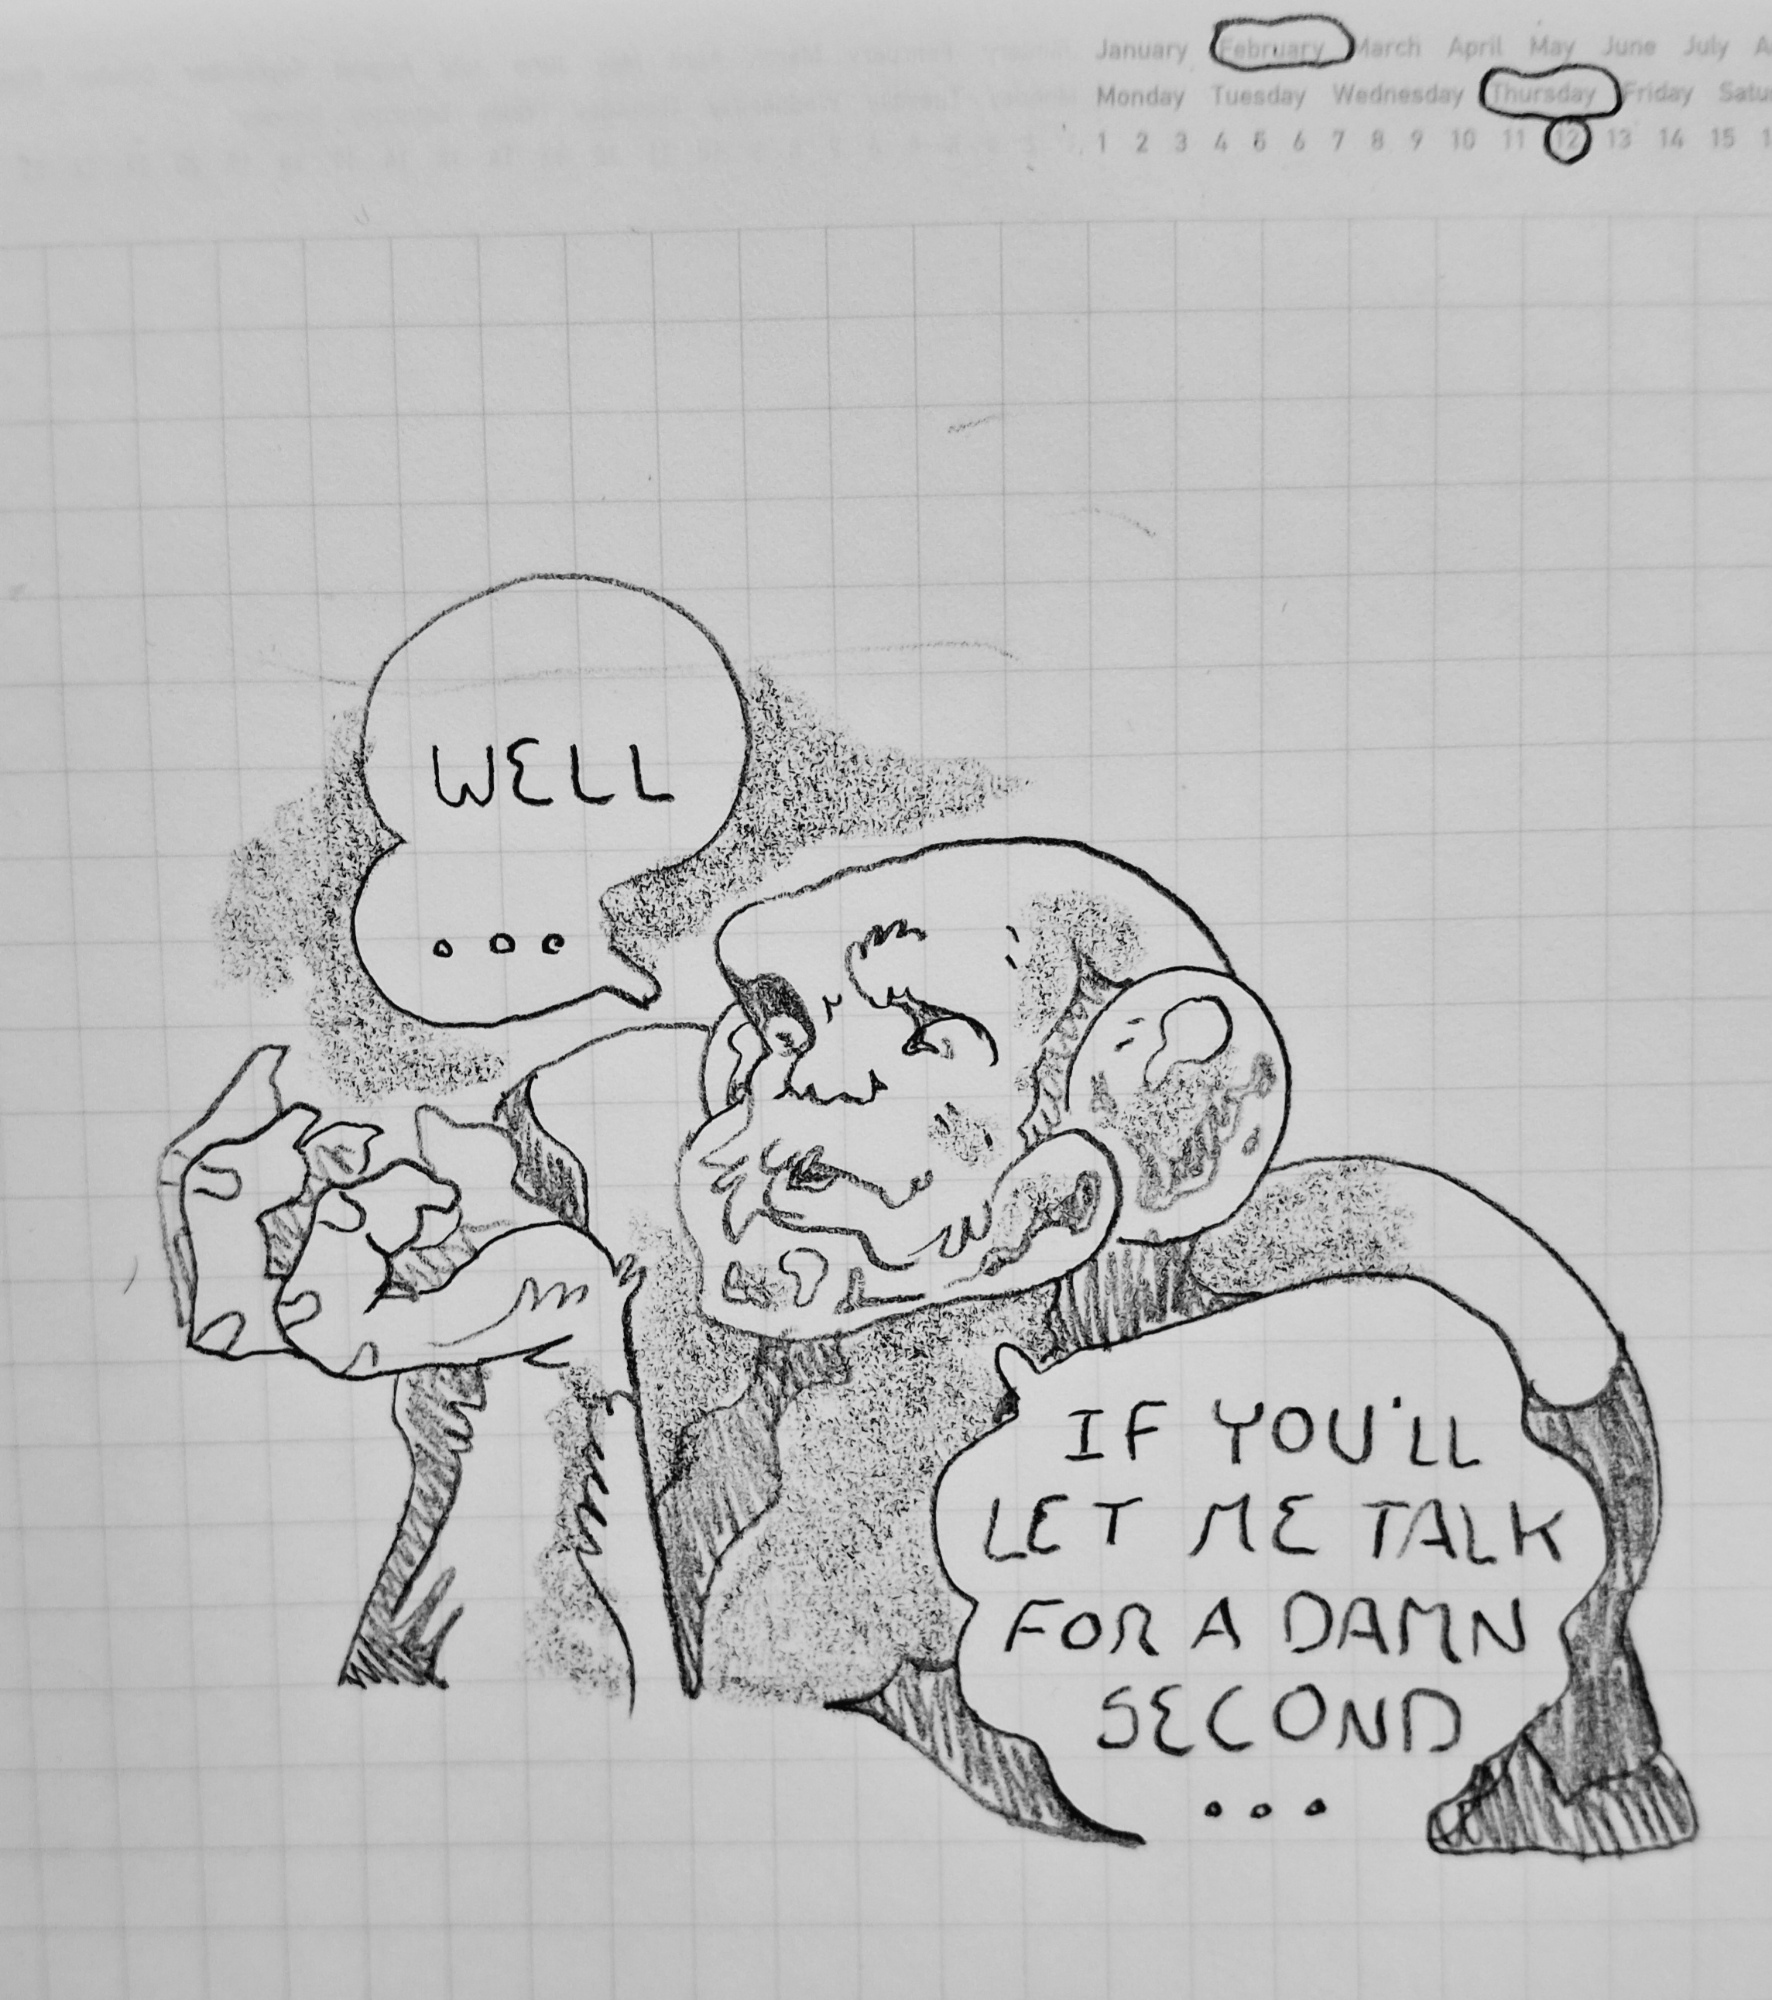 January February March April May June July
Monday Tuesday Wednesday Thursday Friday
1 2 3 4 5 6 7 8 9 10 11 12 13 14 15
WELL
...
IF YOU'LL
LET ME TALK
FOR A DAMN
SECOND
...